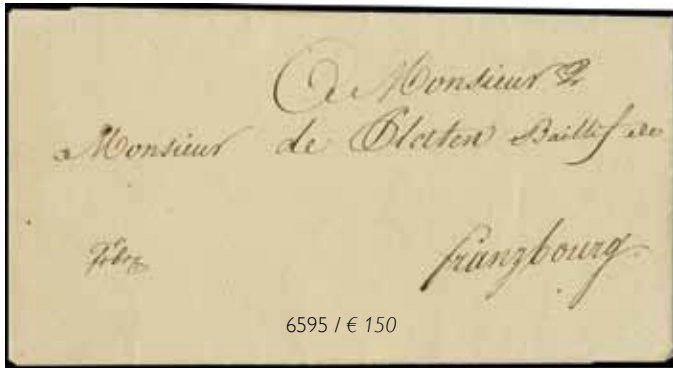 A Monsieur
Monsieur de Platen Baillif de
franzbourg.
6595 / € 150